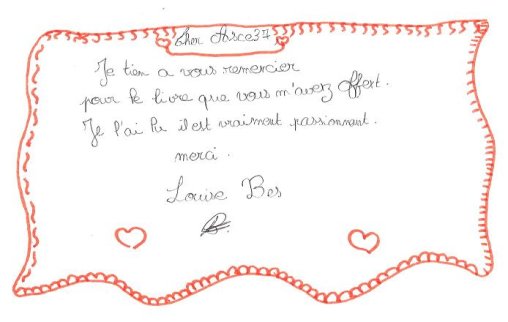 Cher Asce37
Je tien a vous remercier
pour le livre que vous m'avez offert.
Je l'ai lu il est vraiment passionnant.
merci.
Louise Bes